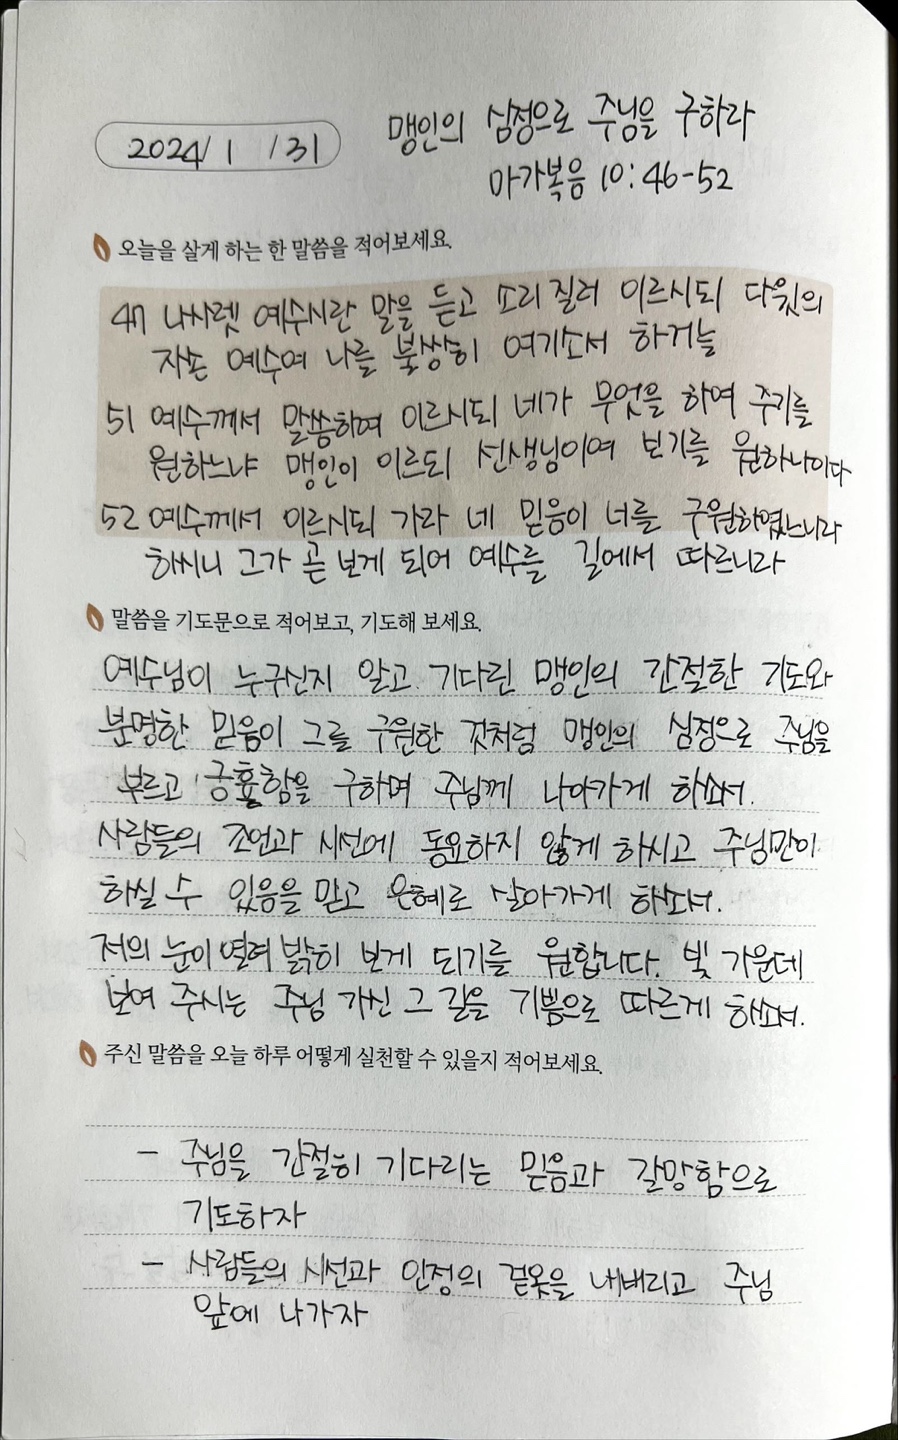 2024/ 1 /31
맹인의 심정으로 주님을 구하라
마가복음 10:46-52
오늘을 살게 하는 한 말씀을 적어보세요.
47 나사렛 예수시란 말을 듣고 소리 질러 이르시되 다윗의
자손 예수여 나를 불쌍히 여기소서 하거늘
51 예수께서 말씀하여 이르시되 네가 무엇을 하여 주기를
원하느냐 맹인이 이르되 선생님이여 보기를 원하나이다
52 예수께서 이르시되 가라 네 믿음이 너를 구원하였느니라
하시니 그가 곧 보게 되어 예수를 길에서 따르니라
말씀을 기도문으로 적어보고, 기도해 보세요.
예수님이 누구신지 알고 기다린 맹인의 간절한 기도와
분명한 믿음이 그를 구원한 것처럼 맹인의 심정으로 주님을
부르고 긍휼함을 구하며 주님께 나아가게 하소서.
사람들의 조언과 시선에 동요하지 않게 하시고 주님만이
하실 수 있음을 믿고 은혜로 살아가게 하소서.
저의 눈이 열려 밝히 보게 되기를 원합니다. 빛 가운데
보여 주시는 주님 가신 그 길을 기쁨으로 따르게 하소서.
주신 말씀을 오늘 하루 어떻게 실천할 수 있을지 적어보세요.
- 주님을 간절히 기다리는 믿음과 갈망함으로
기도하자
- 사람들의 시선과 인정의 겉옷을 내버리고 주님
앞에 나가자